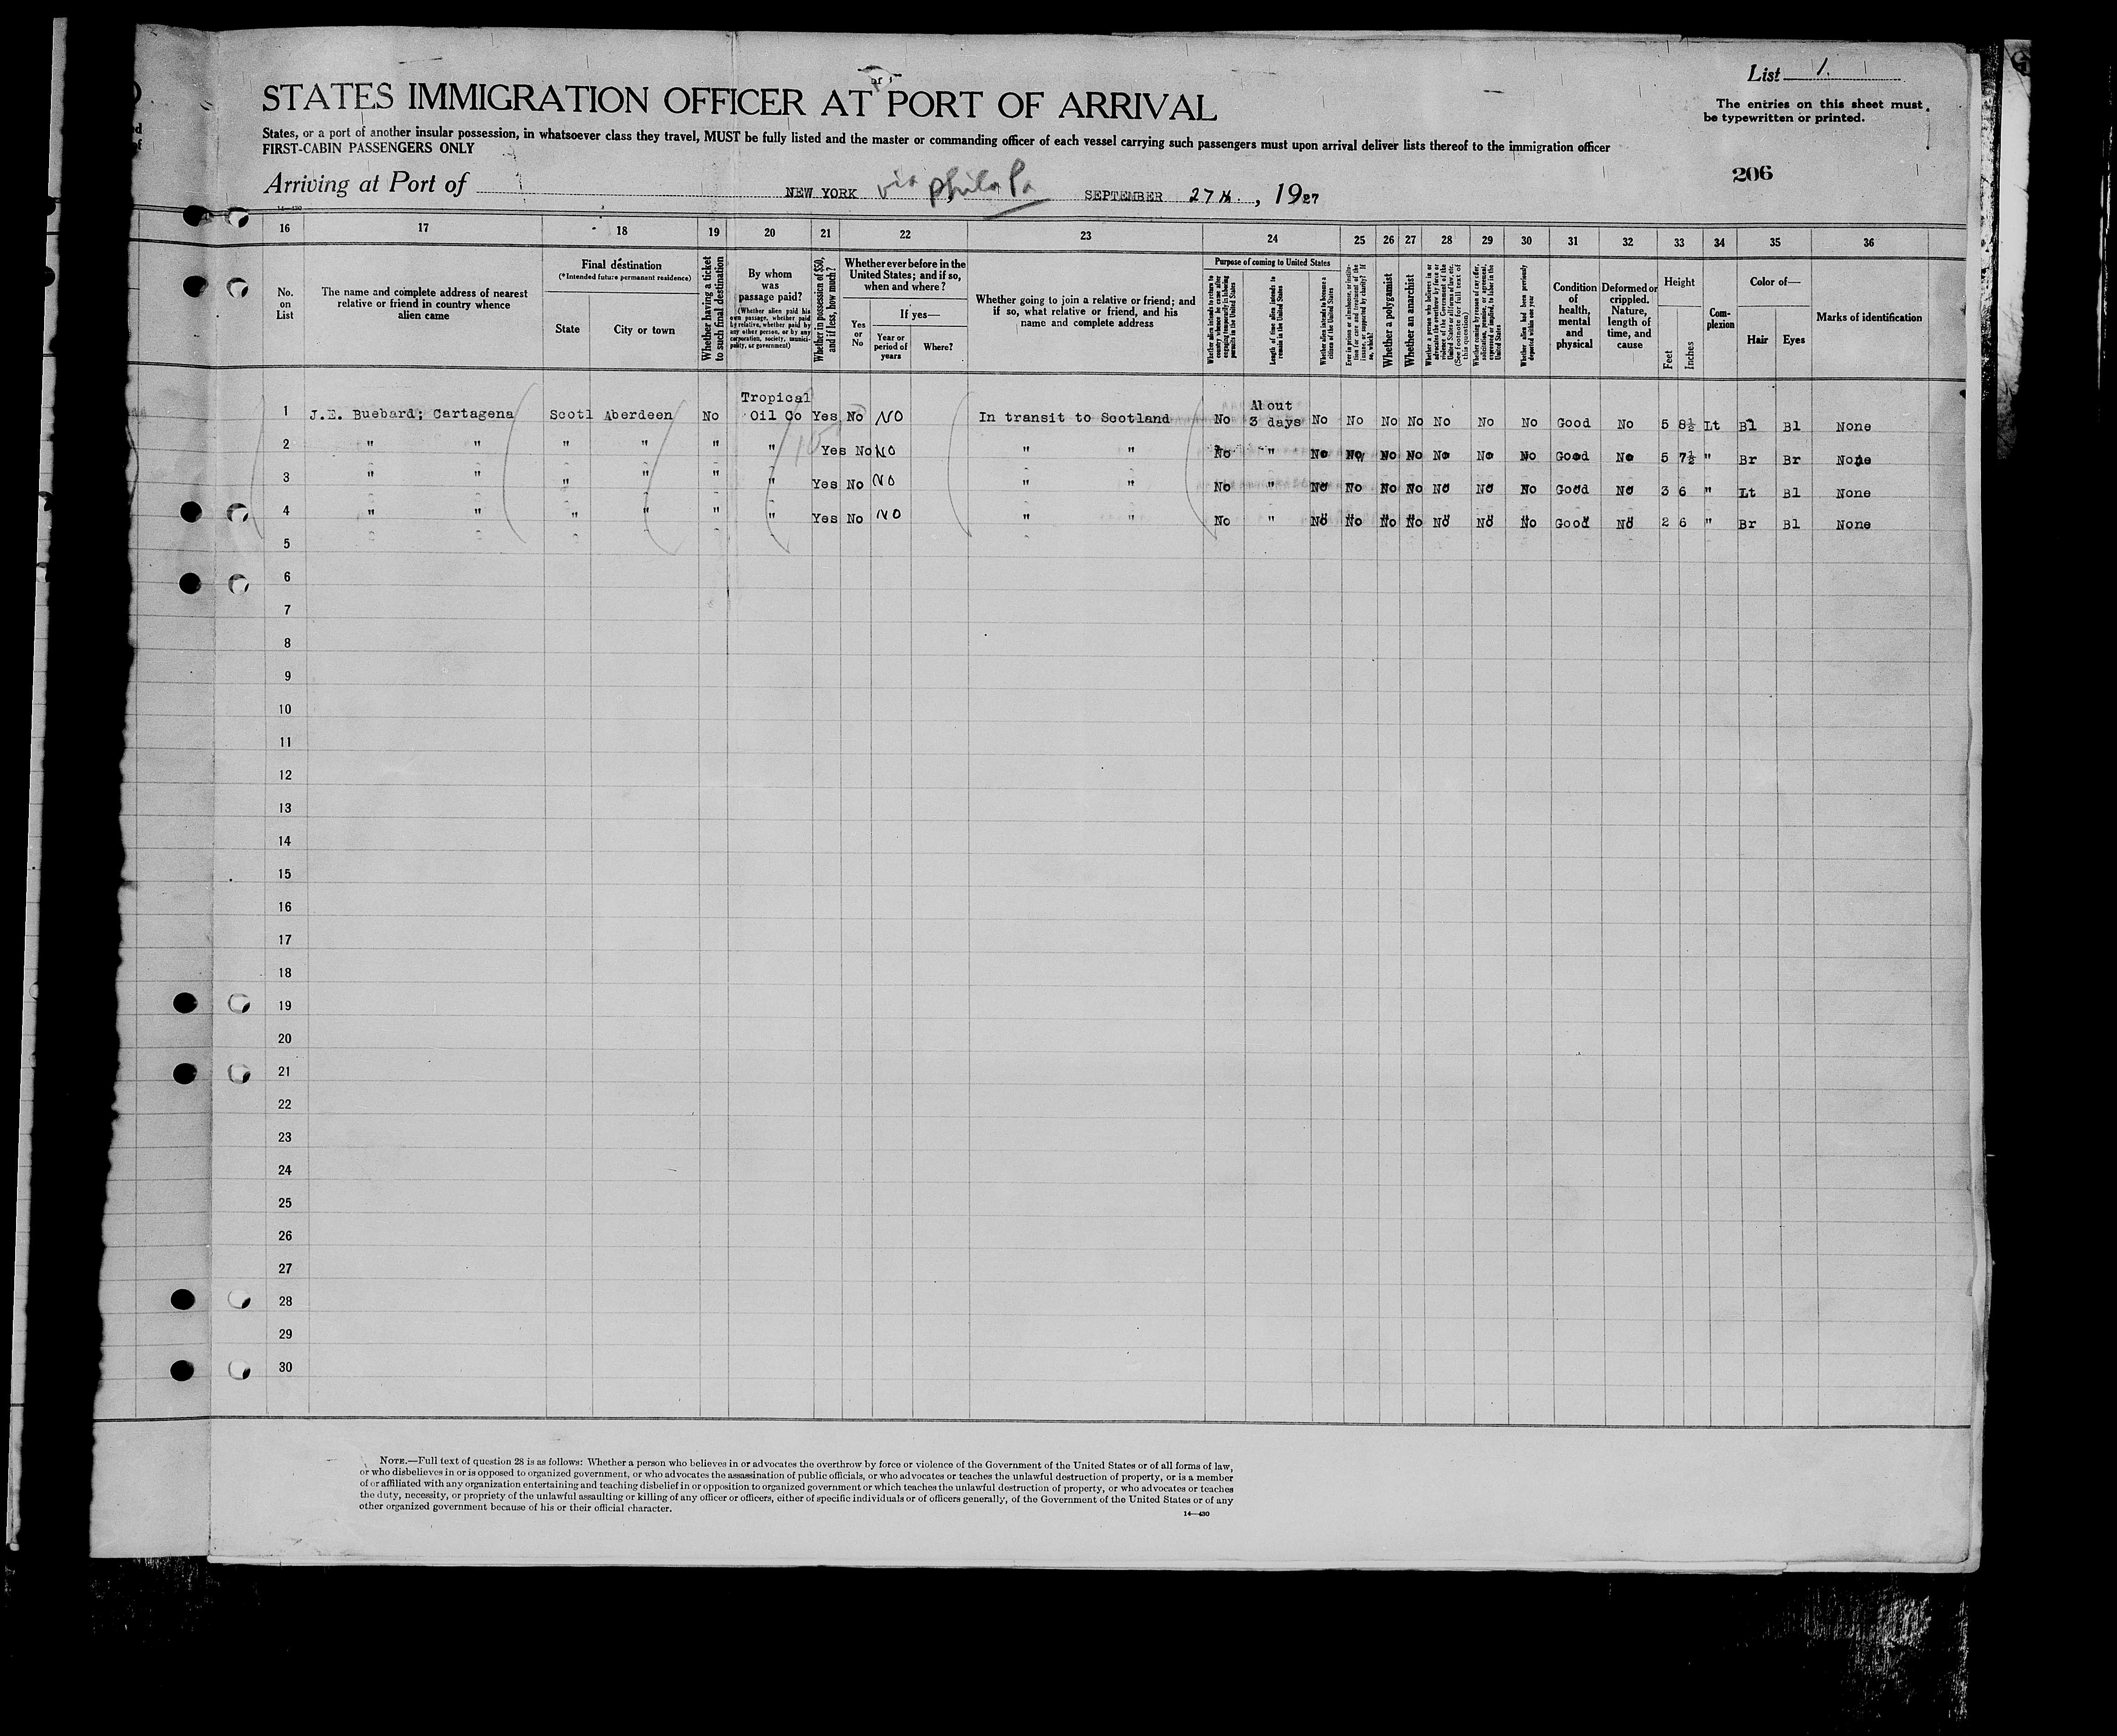 List 1.
STATES IMMIGRATION OFFICER AT PORT OF ARRIVAL
The entries on this sheet must be typewritten or printed.
States, or a port of another insular possession, in whatsoever class they travel, MUST be fully listed and the master or commanding officer of each vessel carrying such passengers must upon arrival deliver lists thereof to the immigration officer
FIRST-CABIN PASSENGERS ONLY
206
Arriving at Port of NEW YORK via Phila Pa SEPTEMBER 27th, 1927
14—430
16 17 18 19 20 21 22 23 24 25 26 27 28 29 30 31 32 33 34 35 36
No. on List
The name and complete address of nearest relative or friend in country whence alien came
Final destination
(*Intended future permanent residence)
State
City or town
Whether having a ticket to such final destination
By whom was passage paid?
(Whether alien paid his own passage, whether paid by relative, whether paid by any other person, or by any corporation, society, municipality, or government)
Whether in possession of $50, and if less, how much?
Whether ever before in the United States; and if so, when and where?
Yes or No
If yes—
Year or period of years
Where?
Whether going to join a relative or friend; and if so, what relative or friend, and his name and complete address
Purpose of coming to United States
Whether alien intends to return to country whence he came after engaging temporarily in laboring pursuits in the United States
Length of time alien intends to remain in the United States
Whether alien intends to become a citizen of the United States
Ever in prison or almshouse, or institution for care and treatment of the insane, or supported by charity? If so, which?
Whether a polygamist
Whether an anarchist
Whether a person who believes in or advocates the overthrow by force or violence of the Government of the United States or all forms of law, etc. (See footnote for full text of this question)
Whether coming by reason of any offer, solicitation, promise, or agreement, expressed or implied, to labor in the United States
Whether alien had been previously deported within one year
Condition of health, mental and physical
Deformed or crippled. Nature, length of time, and cause
Height
Feet
Inches
Complexion
Color of—
Hair
Eyes
Marks of identification
1 J.E. Buebard; Cartagena Scotl Aberdeen No Tropical Oil Co Yes No NO In transit to Scotland No About 3 days No No No No No No No Good No 5 8½ Lt Bl Bl None
2 " " " " " " Yes No NO " " No " No No No No No No No Good No 5 7½ " Br Br None
3 " " " " " " Yes No NO " " No " No No No No No No No Good No 3 6 " Lt Bl None
4 " " " " " " Yes No NO " " No " No No No No No No No Good No 2 6 " Br Bl None
5
6
7
8
9
10
11
12
13
14
15
16
17
18
19
20
21
22
23
24
25
26
27
28
29
30
NOTE.—Full text of question 28 is as follows: Whether a person who believes in or advocates the overthrow by force or violence of the Government of the United States or of all forms of law,
or who disbelieves in or is opposed to organized government, or who advocates the assassination of public officials, or who advocates or teaches the unlawful destruction of property, or is a member
of or affiliated with any organization entertaining and teaching disbelief in or opposition to organized government or which teaches the unlawful destruction of property, or who advocates or teaches
the duty, necessity, or propriety of the unlawful assaulting or killing of any officer or officers, either of specific individuals or of officers generally, of the Government of the United States or of any
other organized government because of his or their official character.
14—430